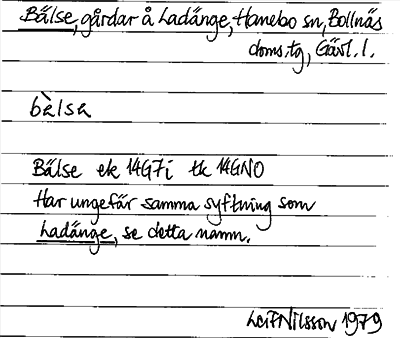 Bälse, gårdar å Ladänge, Hanebo sn, Bollnäs
doms.tg, Gävl. l.
bè̀lsa
Bälse ek 14G7i tk 14GNO
Har ungefär samma syftning som
Ladänge, se detta namn.
Leif Nilsson 1979